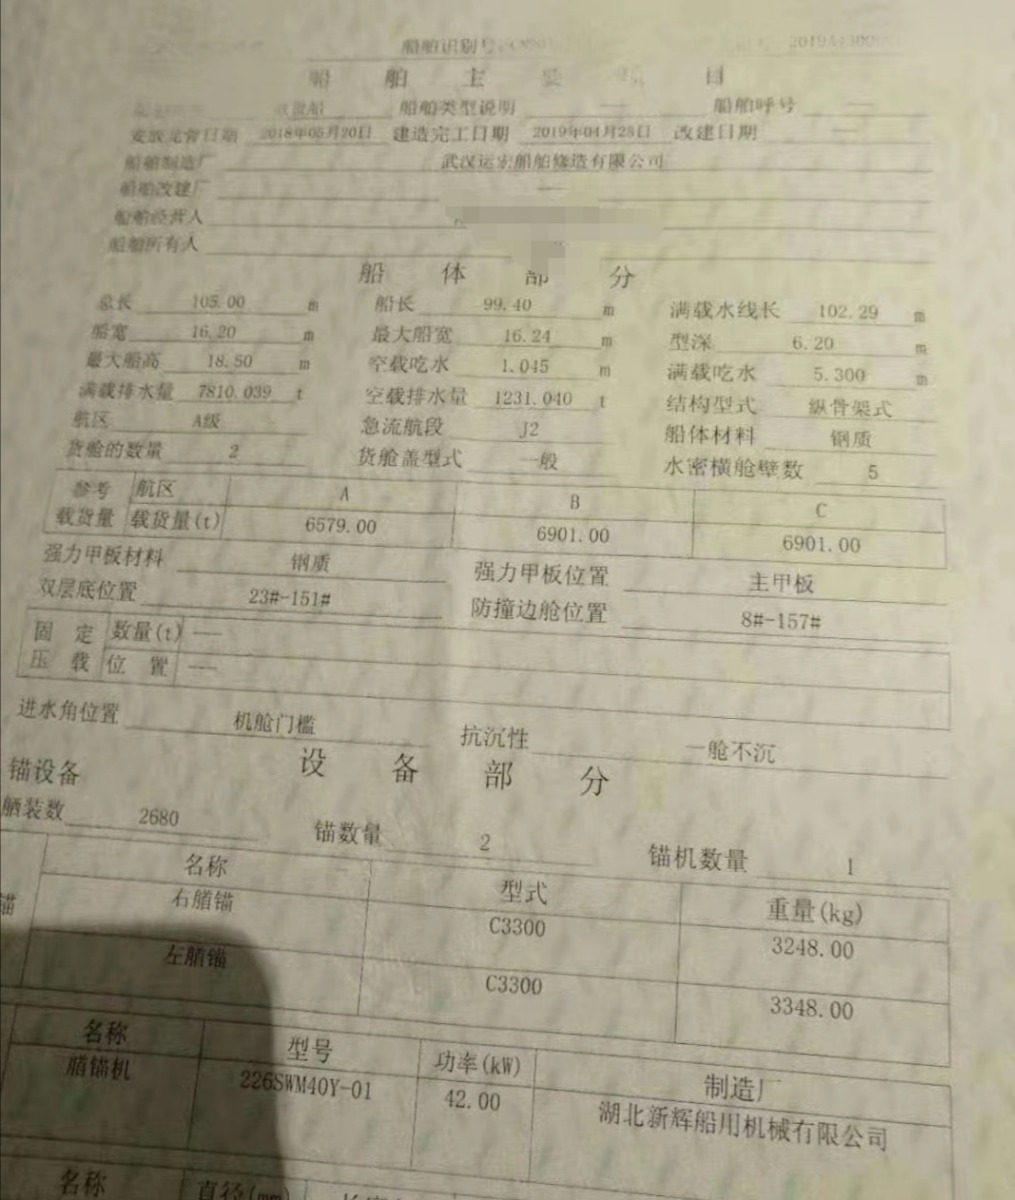 船舶识别号
船 舶 主 要 项 目
船舶类型说明 — 船舶呼号 —
安放龙骨日期 2018年05月20日 建造完工日期 2019年04月25日 改建日期 —
船舶制造厂 武汉运宏船舶修造有限公司
船舶改建厂 —
船舶经营人
船舶所有人
船 体 部 分
总长 105.00 m 船长 99.40 m 满载水线长 102.29 m
船宽 16.20 m 最大船宽 16.24 m 型深 6.20 m
最大船高 18.50 m 空载吃水 1.045 m 满载吃水 5.300 m
满载排水量 7810.039 t 空载排水量 1231.040 t 结构型式 纵骨架式
航区 A级 急流航段 J2 船体材料 钢质
货舱的数量 2 货舱盖型式 一般 水密横舱壁数 5
参考 航区 A B C
载货量 载货量(t) 6579.00 6901.00 6901.00
强力甲板材料 钢质 强力甲板位置 主甲板
双层底位置 23#-151# 防撞边舱位置 8#-157#
固 定 数量(t) ---
压 载 位 置 ---
进水角位置 机舱门槛 抗沉性 一舱不沉
设 备 部 分
锚设备
舾装数 2680 锚数量 2 锚机数量 1
名称 型式 重量(kg)
锚 右艏锚 C3300 3248.00
左艏锚 C3300 3348.00
名称 型号 功率(kW) 制造厂
艏锚机 226SWM40Y-01 42.00 湖北新辉船用机械有限公司
名称 直径(mm)